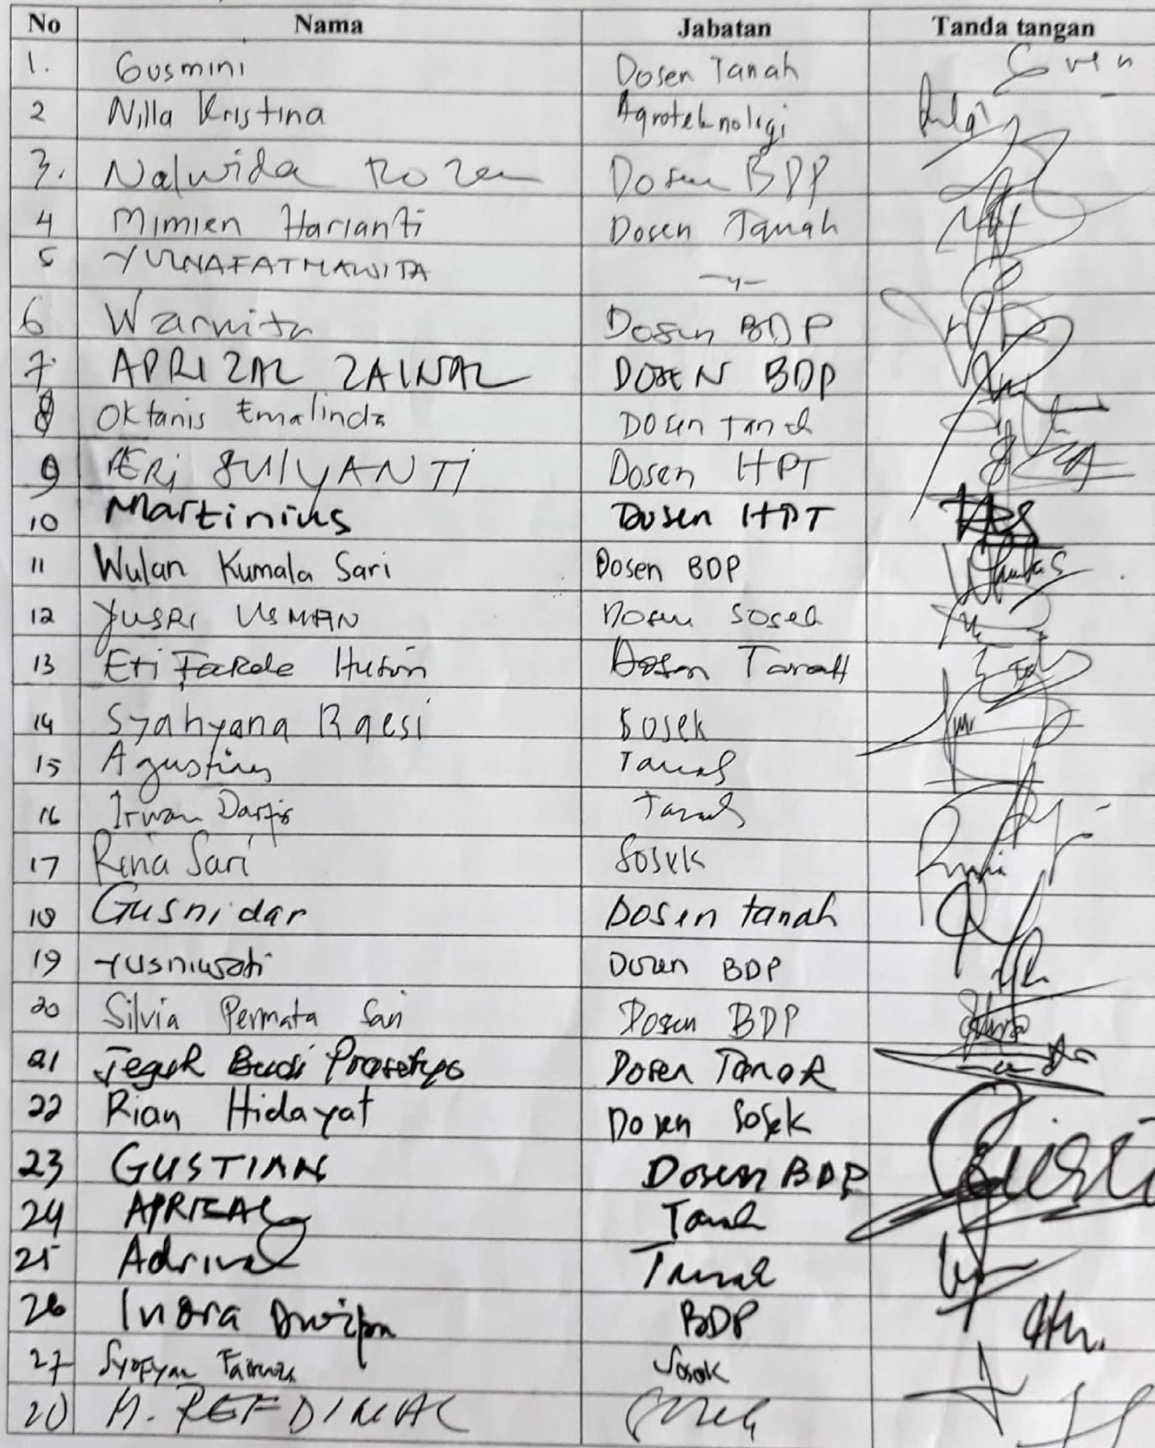 No Nama Jabatan Tanda tangan
1. Gusmini Dosen Tanah
2 Nilla Kristina Agroteknologi
3. Nalwida Rozen Dosen BDP
4 Mimien Harianti Dosen Tanah
5 YULNAFATMAWITA -"-
6 Warnita Dosen BDP
7. APRIZAL ZAINAL DOSEN BDP
8 Oktanis Emalinda Dosen Tanah
9 RERI SULYANTI Dosen HPT
10 Martinius Dosen HPT
11 Wulan Kumala Sari Dosen BDP
12 YUSRI USMAN Dosen Sosek
13 Eti Farda Husin Dosen Tanah
14 Syahyana Raesi Sosek
15 Agustian Tanah
16 Irwan Darfis Tanah
17 Rina Sari Sosek
18 Gusnidar Dosen tanah
19 Yusniwati Dosen BDP
20 Silvia Permata Sari Dosen BDP
21 Teguh Budi Prasetyo Dosen Tanah
22 Rian Hidayat Dosen Sosek
23 GUSTIAN Dosen BDP
24 APRIZAL Tanah
25 Adrinal Tanah
26 Indra Dwipa BDP
27 Syofyan Sosek
28 M. REFDINAL